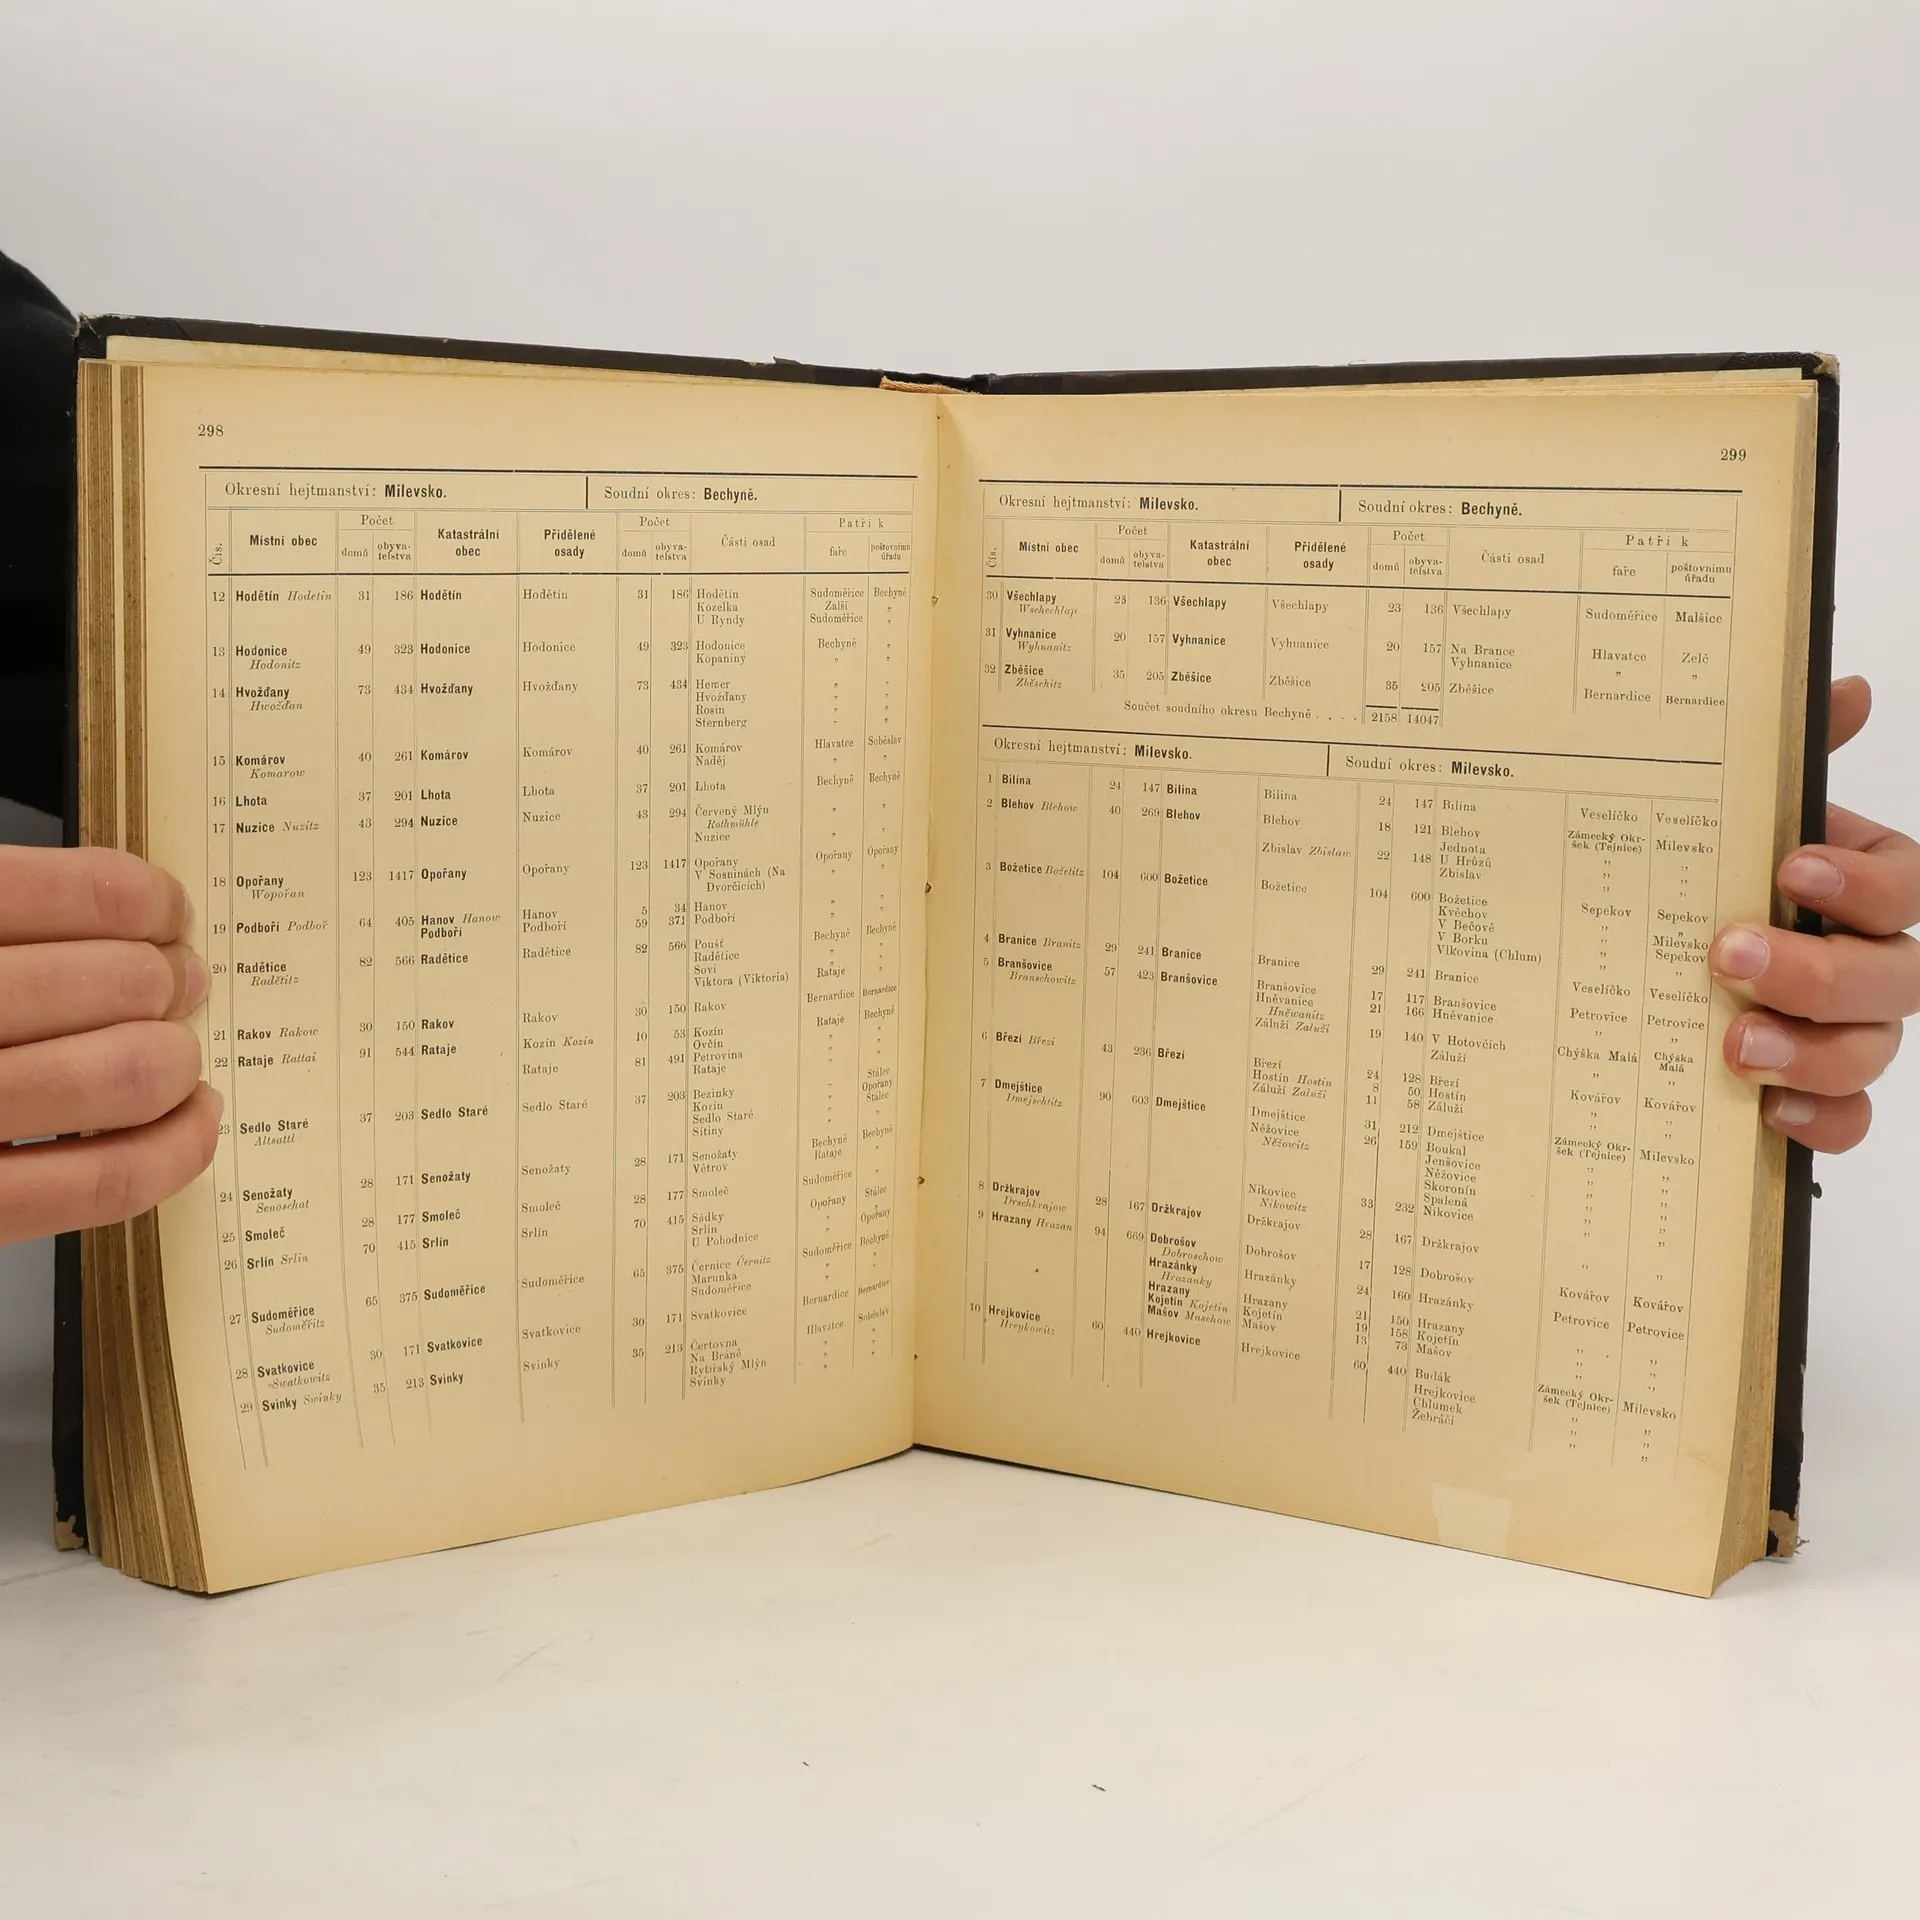 298
Okresní hejtmanství: Milevsko. Soudní okres: Bechyně.
Čís. Místní obec Počet domů obyvatelstva Katastrální obec Přidělené osady Počet domů obyvatelstva Části osad Patří k faře poštovnímu úřadu
12 Hodětín Hodetin 31 186 Hodětín Hodětín 31 186 Hodětín Sudoměřice Bechyně
Kozelka Zalší "
U Ryndy Sudoměřice "
13 Hodonice 49 323 Hodonice Hodonice 49 323 Hodonice Bechyně "
Hodonitz Kopaniny " "
14 Hvožďany 73 434 Hvožďany Hvožďany 73 434 Hemer " "
Hwožďan Hvožďany " "
Rosin " "
Sternberg " "
15 Komárov 40 261 Komárov Komárov 40 261 Komárov Hlavatce Soběslav
Komarow Naděj " "
16 Lhota 37 201 Lhota Lhota 37 201 Lhota Bechyně Bechyně
17 Nuzice Nuzitz 43 294 Nuzice Nuzice 43 294 Červený Mlýn " "
Rothmühle
Nuzice " "
18 Opořany 123 1417 Opořany Opořany 123 1417 Opořany Opořany Opořany
Wopořan V Sosninách (Na " "
Dvorčicích)
19 Podboří Podboř 64 405 Hanov Hanow Hanov 5 34 Hanov " "
Podboří Podboří 59 371 Podboří " "
20 Radětice 82 566 Radětice Radětice 82 566 Poušť Bechyně Bechyně
Radětitz Radětice " "
Soví " "
Viktora (Viktoria) Rataje "
21 Rakov Rakow 30 150 Rakov Rakov 30 150 Rakov Bernardice Bernardice
22 Rataje Rattai 91 544 Rataje Kozín Kozin 10 53 Kozín Rataje Bechyně
Ovčín " "
Rataje 81 491 Petrovina " "
Rataje " "
23 Sedlo Staré 37 203 Sedlo Staré Sedlo Staré 37 203 Bezinky " Stálec
Altsattl Kozín " Opořany
Sedlo Staré " Stálec
Sítiny " "
24 Senožaty 28 171 Senožaty Senožaty 28 171 Senožaty Bechyně Bechyně
Senoschat Větrov Rataje "
25 Smoleč 28 177 Smoleč Smoleč 28 177 Smoleč Sudoměřice "
26 Srlín Srlín 70 415 Srlín Srlín 70 415 Sádky Opořany Stálec
Srlín " "
U Pohodnice " Opořany
27 Sudoměřice 65 375 Sudoměřice Sudoměřice 65 375 Černice Černitz Sudoměřice Bechyně
Sudoměřitz Marunka " "
Sudoměřice " "
28 Svatkovice 30 171 Svatkovice Svatkovice 30 171 Svatkovice Bernardice Bernardice
Swatkowitz
29 Svinky Swinky 35 213 Svinky Svinky 35 213 Čertovna Hlavatce Soběslav
Na Bráně " "
Rytířský Mlýn " "
Svinky " "
299
Okresní hejtmanství: Milevsko. Soudní okres: Bechyně.
Čís. Místní obec Počet domů obyvatelstva Katastrální obec Přidělené osady Počet domů obyvatelstva Části osad Patří k faře poštovnímu úřadu
30 Všechlapy 23 136 Všechlapy Všechlapy 23 136 Všechlapy Sudoměřice Malšice
Wschechlap
31 Vyhnanice 20 157 Vyhnanice Vyhnanice 20 157 Na Brance Hlavatce Zelč
Wyhnanitz Vyhnanice " "
32 Zběšice 35 205 Zběšice Zběšice 35 205 Zběšice Bernardice Bernardice
Zběschitz
Součet soudního okresu Bechyně . . . . 2158 14047
Okresní hejtmanství: Milevsko. Soudní okres: Milevsko.
1 Bilina 24 147 Bilina Bilina 24 147 Bilina Veselíčko Veselíčko
2 Blehov Blehow 40 269 Blehov Blehov 18 121 Blehov Zámecký Okr- Milevsko
Jednota šek (Tejnice) "
Zbislav Zbislaw 22 148 U Hrůzů " "
Zbislav " "
3 Božetice Božetitz 104 600 Božetice Božetice 104 600 Božetice Sepekov Sepekov
Kvěchov " "
V Bečově " Milevsko
V Borku " Sepekov
Vlkovina (Chlum) " "
4 Branice Branitz 29 241 Branice Branice 29 241 Branice Veselíčko Veselíčko
5 Branšovice 57 423 Branšovice Branšovice 17 117 Branšovice Petrovice Petrovice
Branschowitz Hněvanice 21 166 Hněvanice " "
Hněwanitz
Záluží Zaluži 19 140 V Hotovčích Chýška Malá Chýška Malá
Záluží " "
6 Březí Březi 43 236 Březí Březí 24 128 Březí Kovářov Kovářov
Hostín Hostin 8 50 Hostín " "
Záluží Zaluží 11 58 Záluží " "
7 Dmejštice 90 603 Dmejštice Dmejštice 31 212 Dmejštice Zámecký Okr- Milevsko
Dmejschtitz šek (Tejnice)
Něžovice 26 159 Boukal " "
Něžowitz Jenšovice " "
Něžovice " "
Skoronín " "
Spalená " "
Nikovice 33 232 Nikovice " "
Nikowitz
8 Držkrajov 28 167 Držkrajov Držkrajov 28 167 Držkrajov " "
Drschkrajow
9 Hrazany Hrazan 94 669 Dobrošov Dobrošov 17 128 Dobrošov Kovářov Kovářov
Dobroschow
Hrazánky Hrazánky 24 160 Hrazánky Petrovice Petrovice
Hrazanky
Hrazany Hrazany 21 150 Hrazany " "
Kojetín Kojetin Kojetín 19 158 Kojetín " "
Mašov Maschow Mašov 13 73 Mašov " "
10 Hrejkovice 60 440 Hrejkovice Hrejkovice 60 440 Budák Zámecký Okr- Milevsko
Hreykowitz šek (Tejnice)
Hrejkovice " "
Chlumek " "
Žebráčí " "